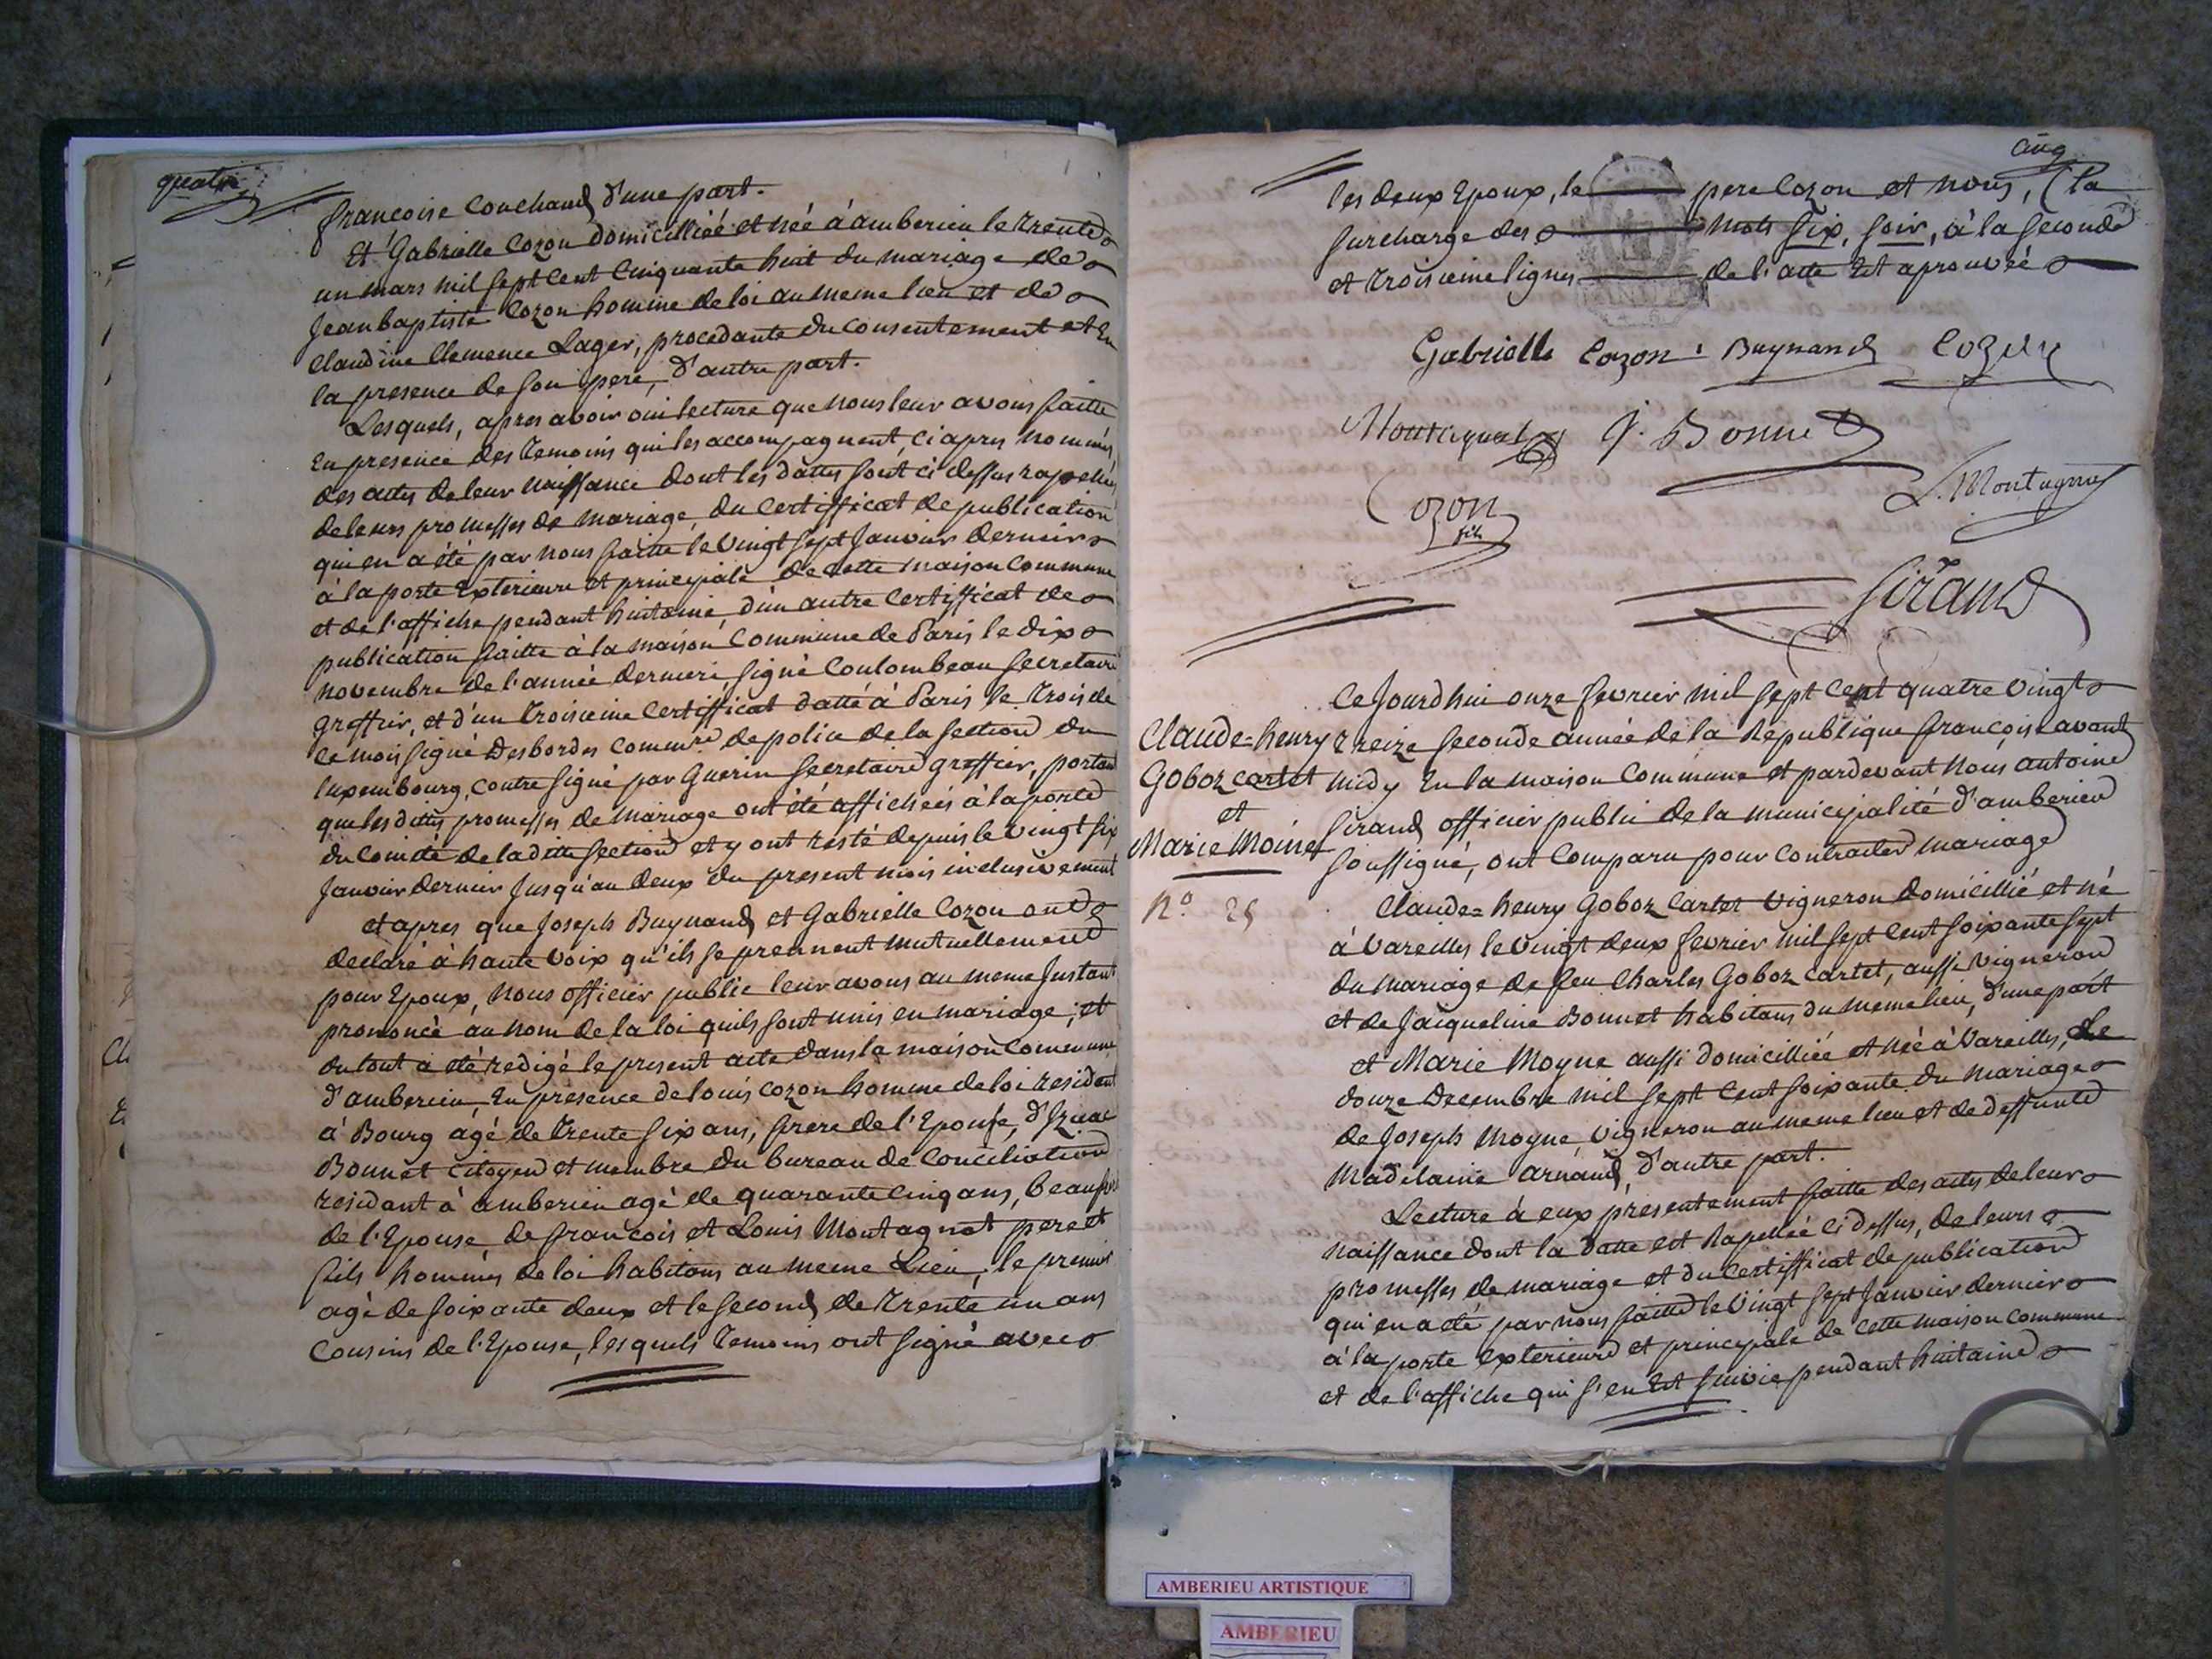 quatre
francoise Couchaud d'une part.
Et Gabrielle Cozon domicilliéé et néé à amberieu le trente
un mars mil sept cent cinquante huit du mariage de
Jean baptiste Cozon homme de loi au meme lieu et de
Claudine Clemence Lager, procedante du consentement et En
la presence de son pere, d'autre part.
Lesquels, apres avoir oui lecture que nous leur avons faitte
En presence des temoins qui les accompagnent ci apres nommés,
des actes de leur naissance dont les dattes sont ci dessus rapellées
de leurs promesses de mariage, du certifficat de publication
qui en a été par nous faitte le vingt sept Janvier dernier
à la porte Exterieure et principale de cette maison commune
et de l'affiche pendant huitaine, d'un autre certifficat de
publication faitte à la maison commune de Paris le dix
novembre de l'année derniere, signé Coulombeau secretaire
greffier, et d'un troisieme certifficat datté à Paris le trois de
ce mois signé Desbordes commre de police de la section du
luxembourg, contre signé par Guerin secretaire greffier, portant
que lesdittes promesses de mariage ont été affichées à la porte
du comité de laditte section et y ont resté depuis le vingt six
Janvier dernier Jusqu'au deux du present mois inclusivement
et apres que Joseph Buynand et Gabrielle Cozon ont
declaré à haute voix qu'ils se prennent mutuellement
pour Epoux, nous officier public leur avons au meme Instant
prononcé au nom de la loi quils sont unis en mariage; et
du tout a été redigé le present acte dans la maison commune
d'amberieu, En presence de louis Cozon homme de loi resident
à Bourg agé de trente six ans, frere de l'Epouse, d'Izaac
Bonnet citoyen et membre du bureau de conciliation
residant à amberieu agé de quarante cinq ans, beaufrere
de l'Epouse, de francois et Louis Montagnat pere et
fils hommes de loi habitans au meme Lieu, le premier
agé de soixante deux et le second de trente un ans
Cousins de l'Epouse, lesquels temoins ont signé avec
cinq
les deux Epoux, le pere Cozon et nous, (la
surcharge des mots six, soir, à la seconde
et troisieme lignes de l'acte Est aprouvéé
Gabrielle Cozon Buynand Cozon
Montagnat J. Bonnet
L. Montagnat
Cozon
fils
Sirand
Ce Jourdhui onze fevrier mil sept cent quatre vingt
Claude=henry treize seconde année de la Republique francoise avant
Goboz cartet midy En la maison commune et pardevant nous antoine
et
Sirand officier public de la municipalité d'amberieu
Marie Moine
soussigné, ont comparu pour contracter mariage
No 25
Claude=henry Goboz Cartet vigneron domicillié et né
à Vareilles le vingt deux fevrier mil sept cent soixante sept
du mariage de feu Charles Goboz cartet, aussi vigneron
et de Jacqueline Bonnet habitans du meme lieu, d'une part
et Marie Moyne aussi domicilliéé et néé à Vareilles, le
douze Decembre mil sept cent soixante du mariage
de Joseph Moyne, vigneron au meme lieu et de deffunte
Madelaine Arnaud, d'autre part.
Lecture à eux presentement faitte des actes de leur
naissance dont la datte Est Rapelléé ci dessus, de leurs
promesses de mariage et du certifficat de publication
qui en a été par nous faitte le vingt sept Janvier dernier
à la porte exterieure et principale de cette maison commune
et de l'affiche qui s'en Est suivie pendant huitaine
AMBERIEU ARTISTIQUE
AMBERIEU